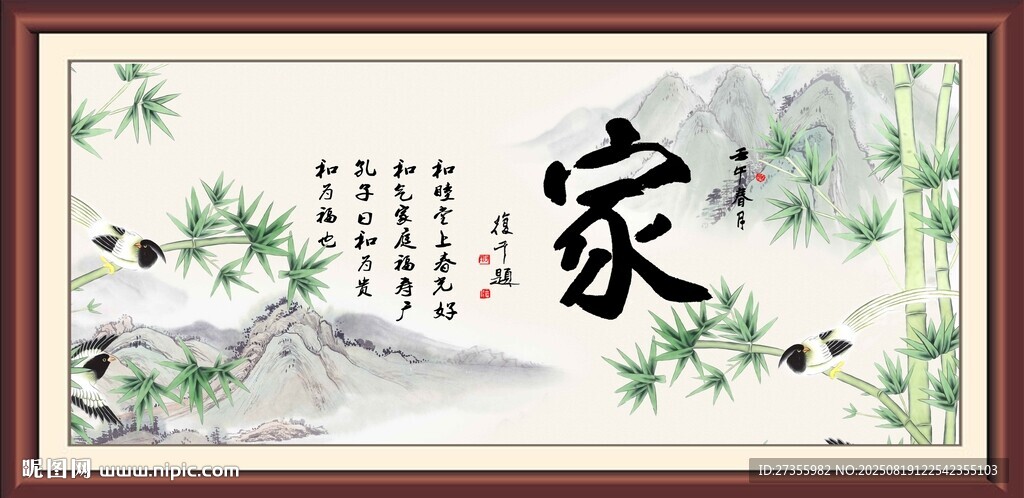 壬午春月
家
復千題
和睦堂上春光好
和气家庭福寿广
孔子曰和为贵
和为福也
昵图网 www.nipic.com
ID:27355982 NO:20250819122542355103